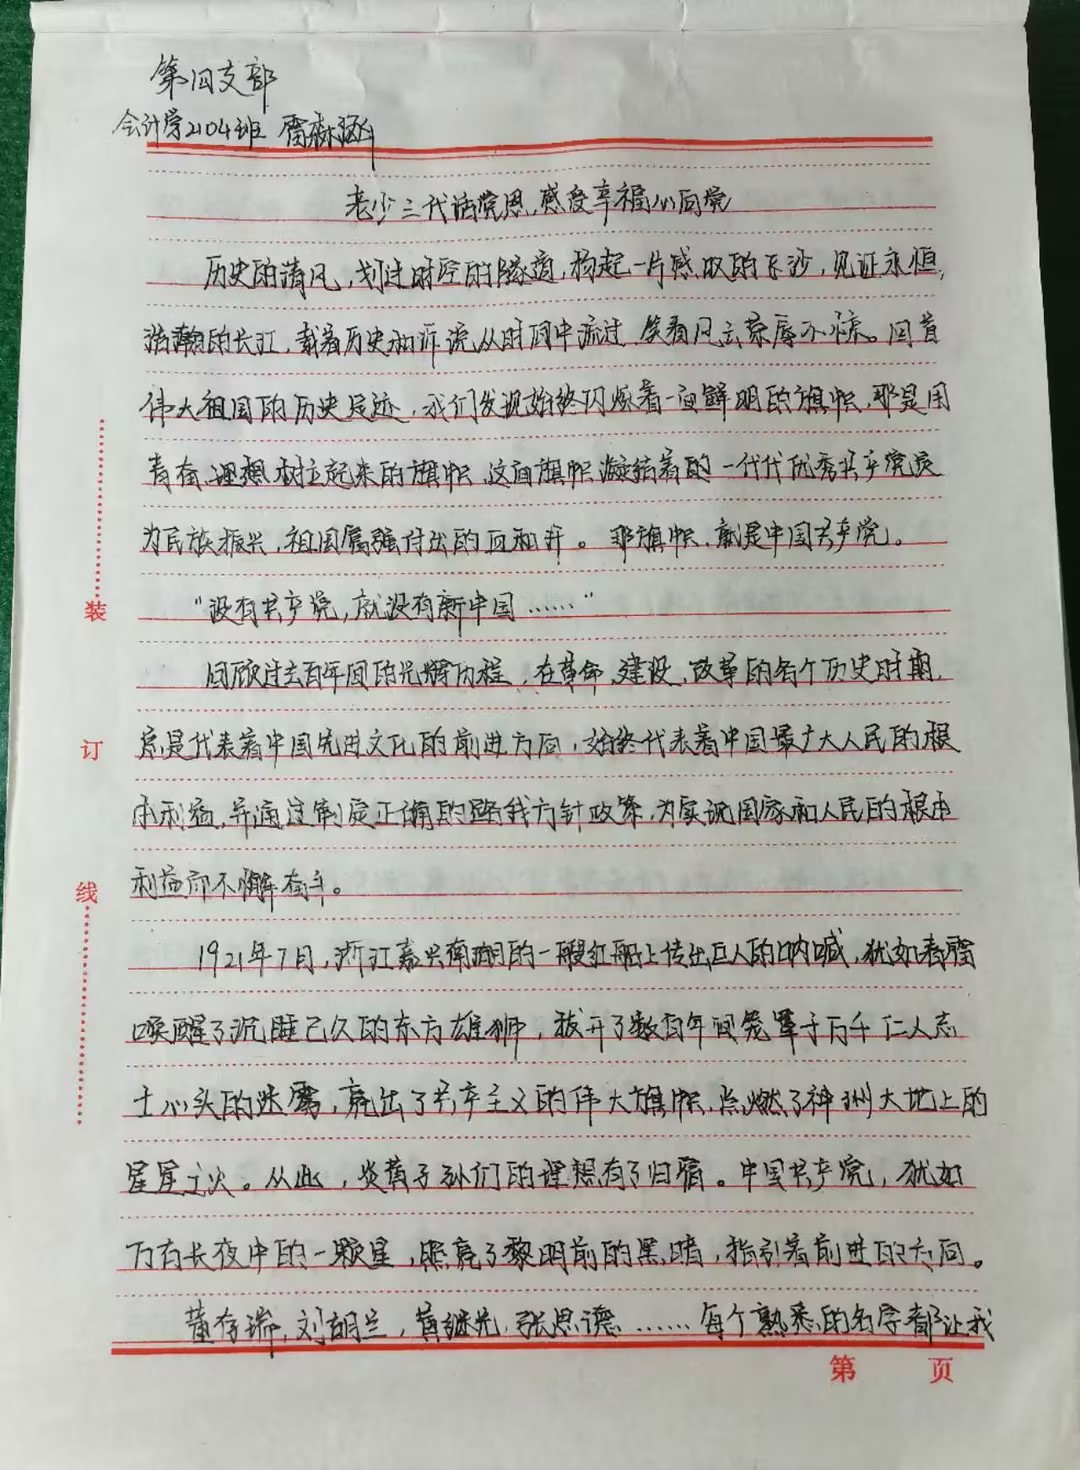 第四支部
会计学2104班 雷森涵
老少三代话党恩,感受幸福心向党
历史的清风,划过时空的隧道,扬起一片感叹的飞沙,见证永恒,
浩瀚的长江,载着历史和诉说从时间中流过,笑看风云荣辱不惊。回首
伟大祖国的历史足迹,我们发现始终闪烁着一面鲜明的旗帜,那是用
青春、理想树立起来的旗帜,这面旗帜凝结着的一代代优秀共产党员
为民族振兴,祖国富强付出的血和汗。那旗帜,就是中国共产党。
“没有共产党,就没有新中国……”
回顾过去百年间的光辉历程,在革命、建设、改革的各个历史时期,
总是代表着中国先进文化的前进方向,始终代表着中国最广大人民的根
本利益,并通过制定正确的路线方针政策,为实现国家和人民的根本
利益而不懈奋斗。
1921年7月,浙江嘉兴南湖的一艘红船上传出巨人的呐喊,犹如春雷
唤醒了沉睡已久的东方雄狮,拨开了数百年间笼罩于万千仁人志
士心头的迷雾,亮出了共产主义的伟大旗帜,点燃了神州大地上的
星星之火。从此,炎黄子孙们的理想有了归宿。中国共产党,犹如
万古长夜中的一颗星,照亮了黎明前的黑暗,指引着前进的方向。
董存瑞,刘胡兰,黄继光,张思德……每个熟悉的名字都让我
装
订
线
第 页